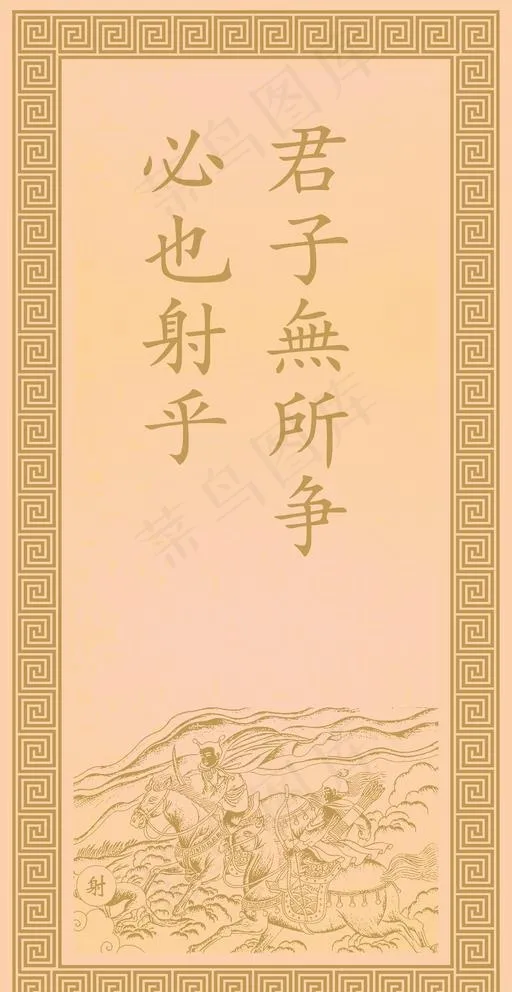 君子無所争
必也射乎
射
菜鸟图库
菜鸟图库